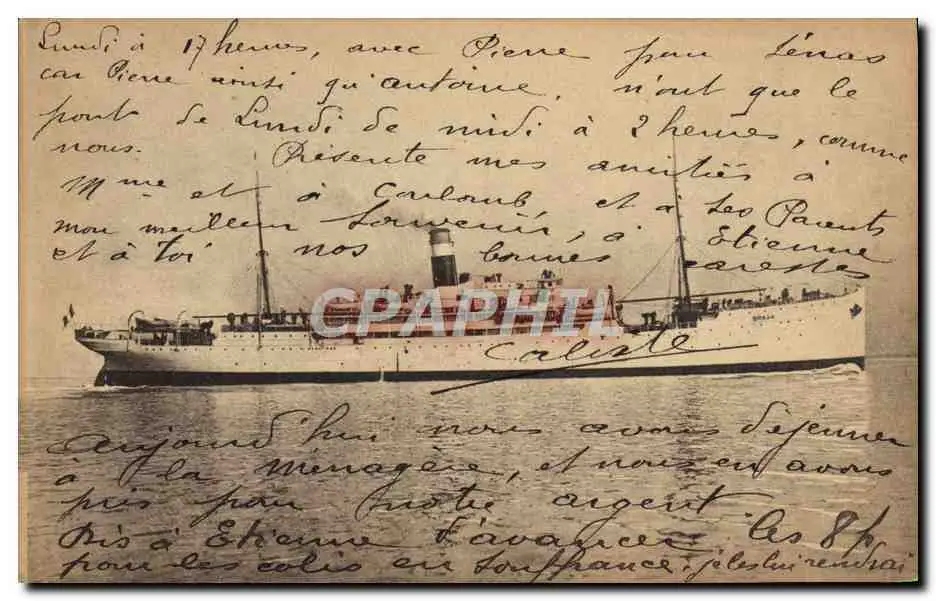 Lundi à 17 heures, avec Pierre pour Sénas
car Pierre ainsi qu'antoine, n'ont que le
pont de Lundi de midi à 2 heures, comme
nous. Présente mes amitiés à
Mme et à Coulomb et à Ses Parents
mon meilleur Souvenir, à Etienne
et à toi nos bonnes caresses
CPARAMAPHIL
Caliste
aujourd'hui nous avons déjeuner
à la Ménagère, et nous en avons
pris pour notre argent
Dis à Etienne d'avancer les 8f
pour les colis en Souffrance, je les lui rendrai